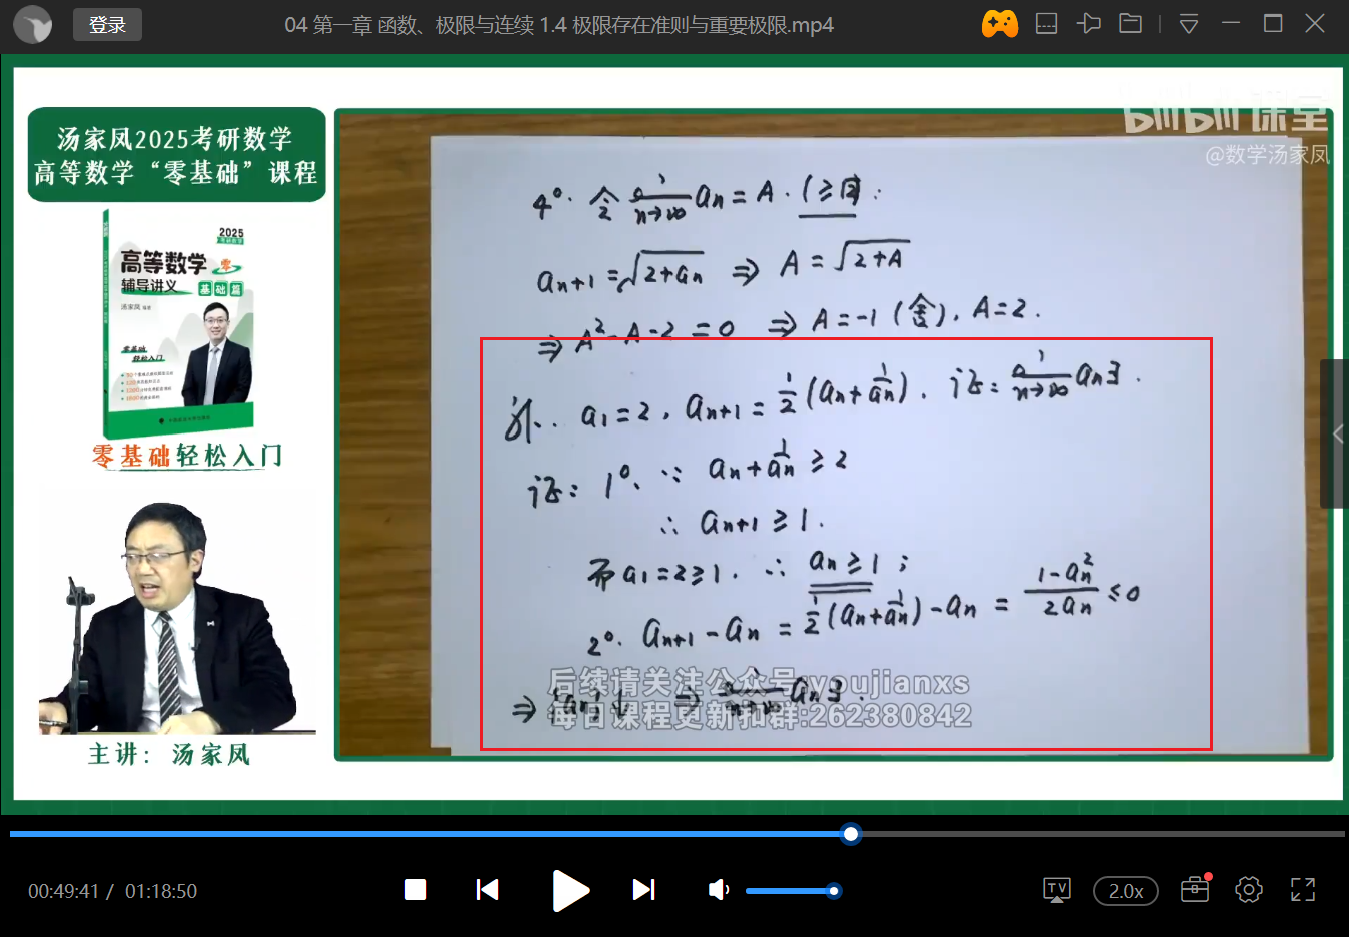 登录
04 第一章 函数、极限与连续 1.4 极限存在准则与重要极限.mp4
汤家凤2025考研数学
高等数学“零基础”课程
bilibili 课堂
@数学汤家凤
2025
高等数学 零
辅导讲义 基础篇
汤家凤
零基础
轻松入门
零基础轻松入门
主讲：汤家凤
4°. 令 lim n→∞ an = A. (≥
an+1 = √2+an ⇒ A = √2+A
⇒ A² - A - 2 = 0 ⇒ A = -1 (舍), A = 2.
例. a1 = 2, an+1 = 1/2 (an + 1/an). 证: lim n→∞ an ∃.
证: 1°. ∵ an + 1/an ≥ 2
∴ an+1 ≥ 1.
而 a1 = 2 ≥ 1. ∴ an ≥ 1;
2°. an+1 - an = 1/2 (an + 1/an) - an = 1-an²/2an ≤ 0
⇒ {an}↓ ⇒ lim n→∞ an ∃.
后续请关注公众号youjianxs
每日课程更新扣群:262380842
00:49:41 / 01:18:50
TV
2.0x